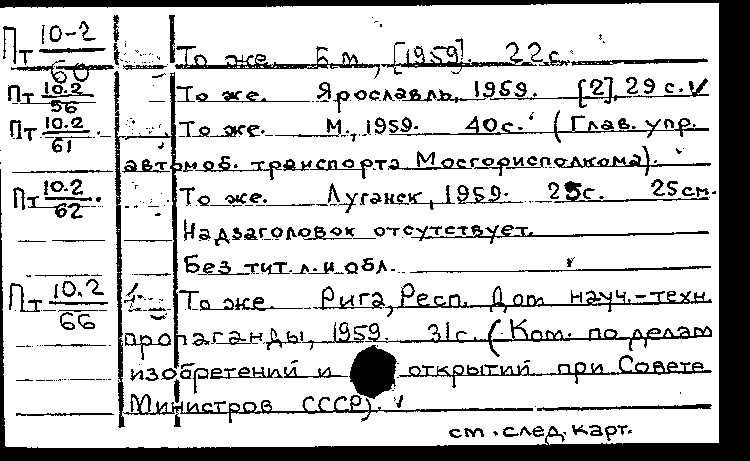 Пт 10-2/60 То же. Б.м., [1959]. 22с.
Пт 10.2/56 То же. Ярославль, 1959. [2], 29 с. √
Пт 10.2/61 То же. М., 1959. 40с. (Глав. упр.
автомоб. транспорта Мосгорисполкома).
Пт 10.2/62 То же. Луганск, 1959. 25с. 25см.
Надзаголовок отсутствует.
Без тит. л. и обл.
Пт 10.2/66 То же. Рига, Респ. Дом науч.-техн.
пропаганды, 1959. 31с. (Ком. по делам
изобретений и открытий при Совете
Министров СССР). √
см. след. карт.